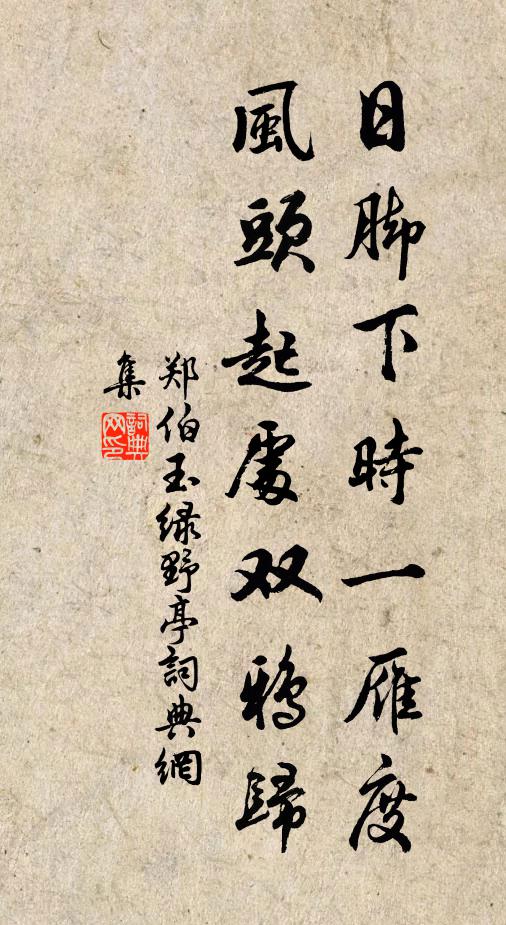 日脚下時一雁度
風頭起處双鴉歸
郑伯玉绿野亭詞典網
集
詞典
网印